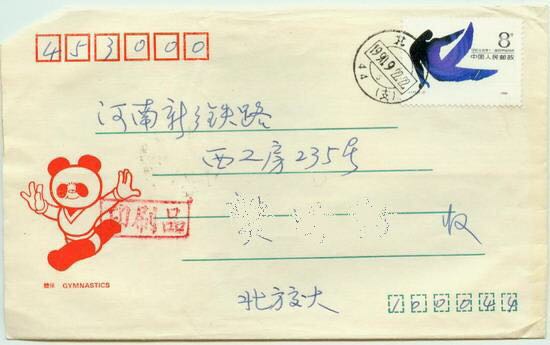 453000
8分
中国人民邮政
北
1990.9.22.22
44
(支)
河南新乡铁路
西工房235号
收
印刷品
體操 GYMNASTICS
北方交大
100044